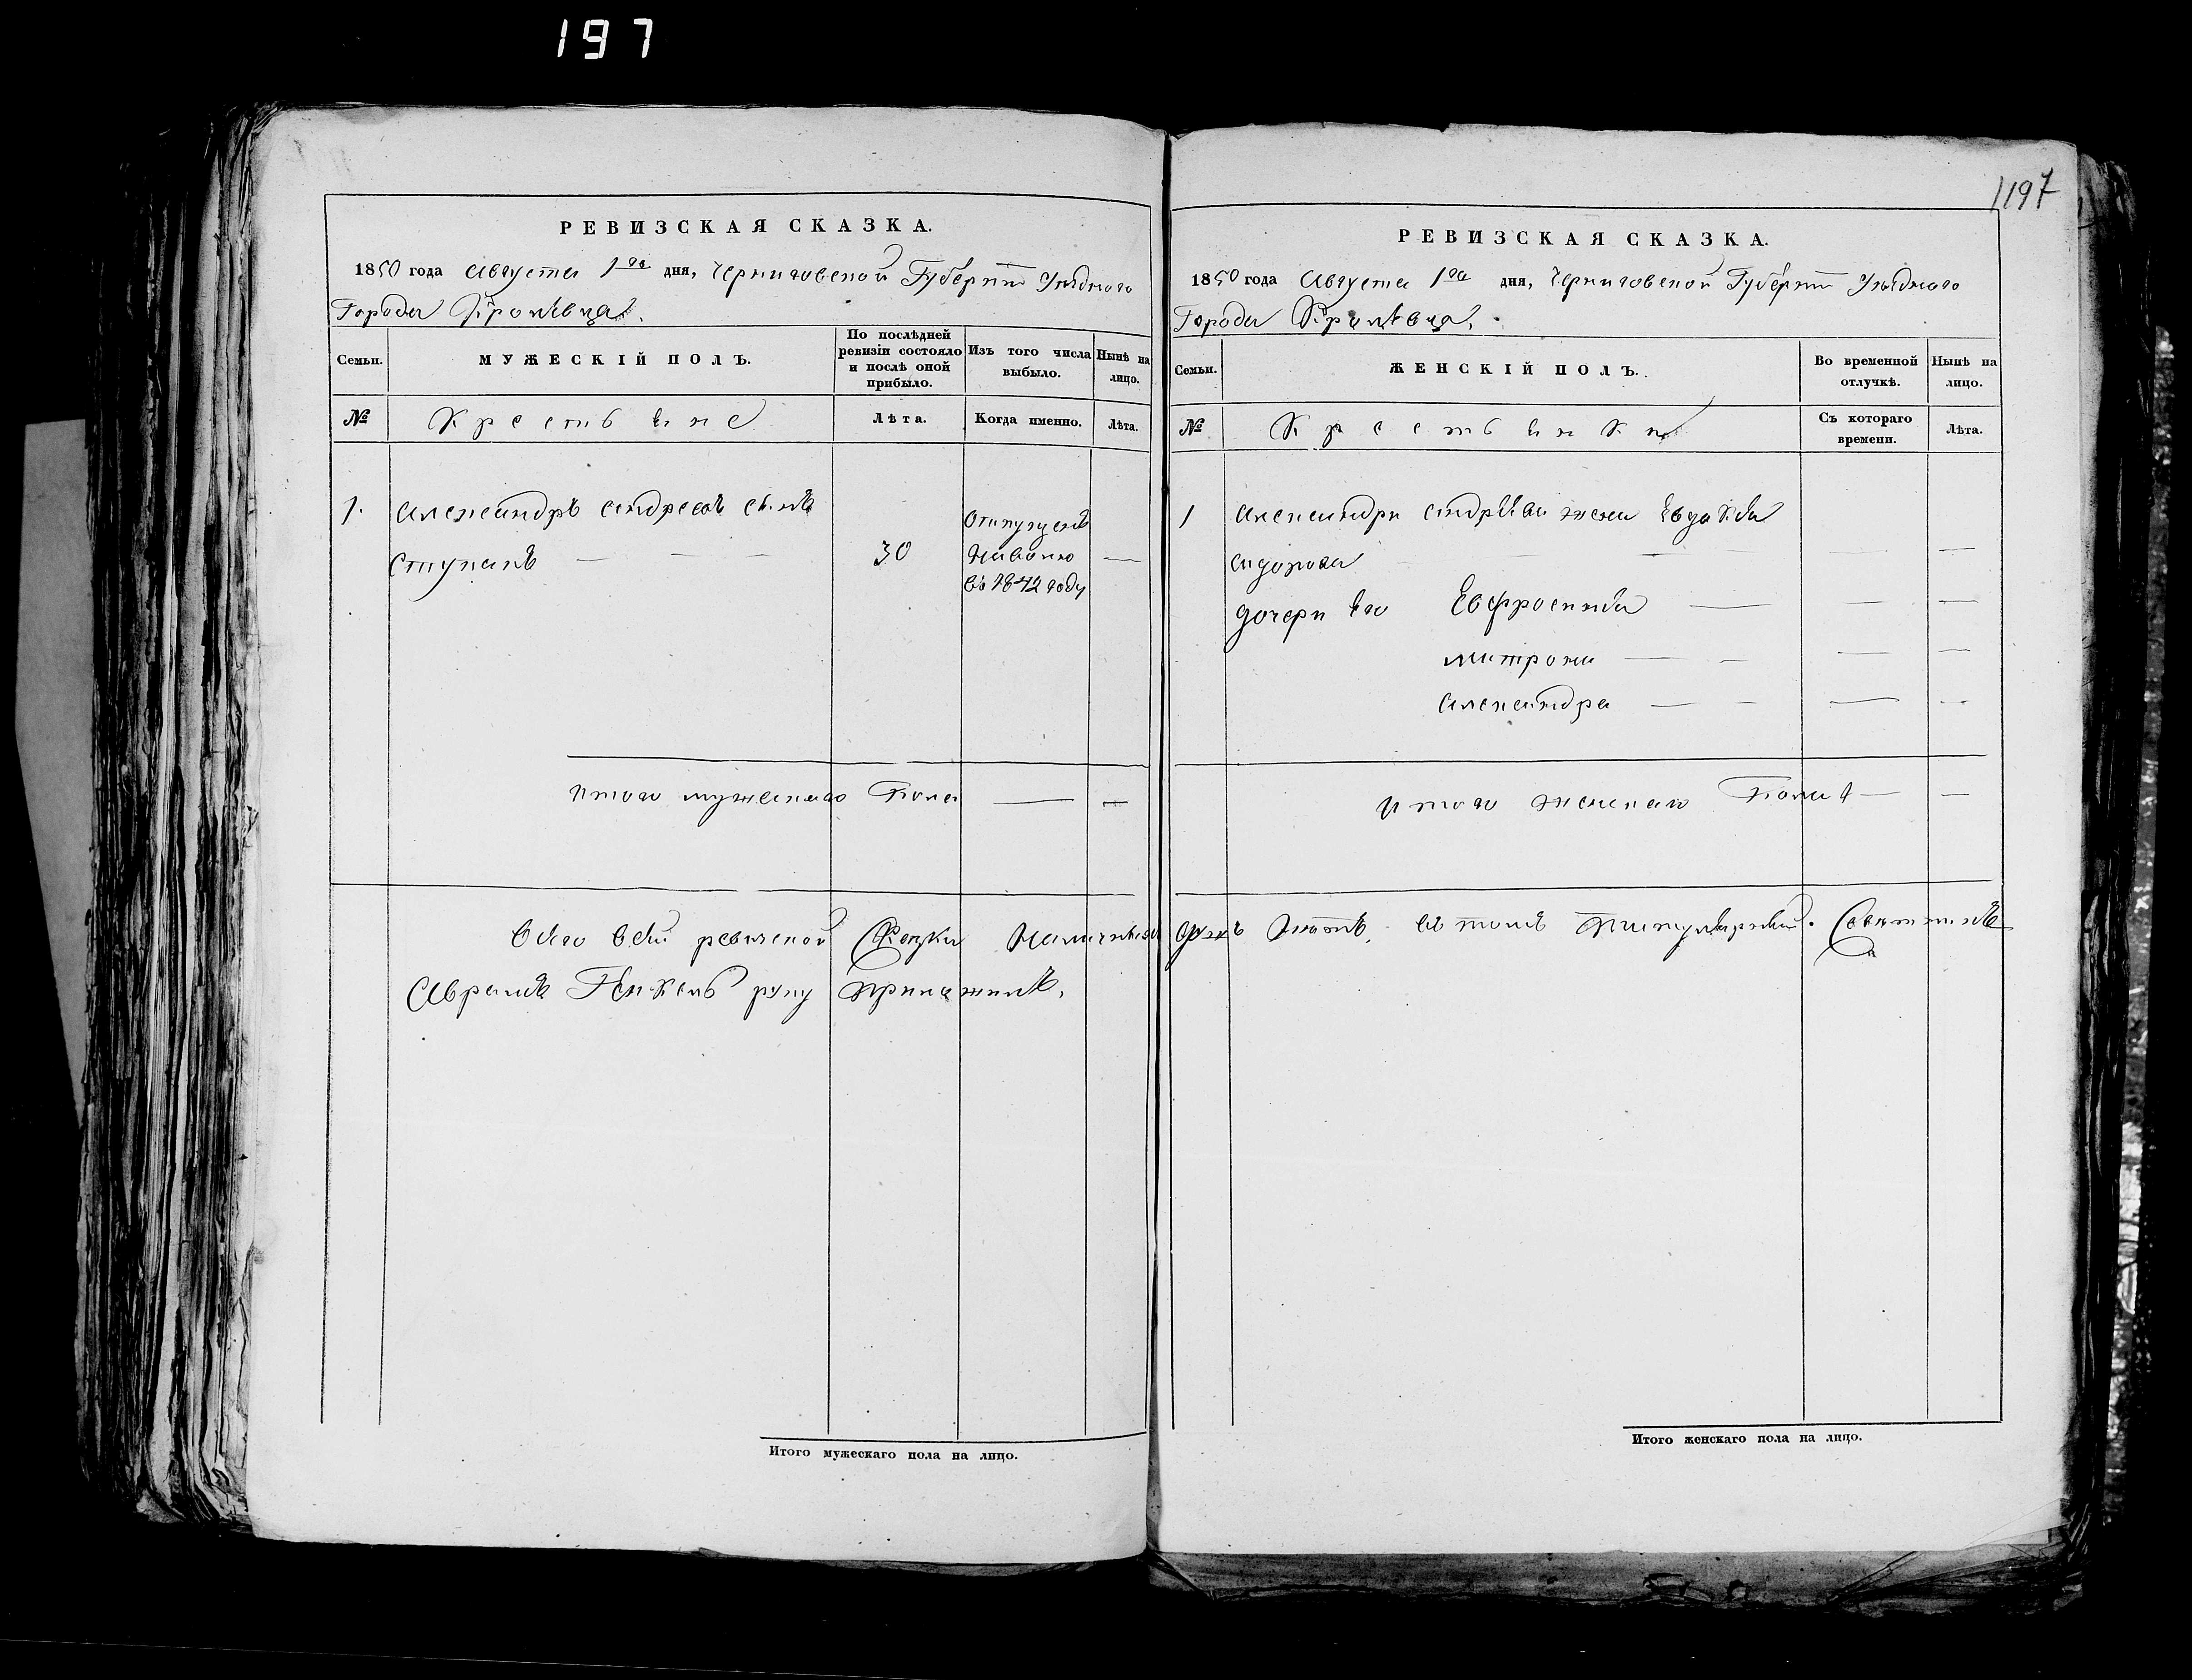 197
1197
РЕВИЗСКАЯ СКАЗКА.
1850 года Августа 1го дня, Черниговской Губерніи Уѣзднаго
Города Кролѣвца.
Семьи.
МУЖЕСКІЙ ПОЛЪ.
По послѣдней ревизіи состояло и послѣ оной прибыло.
Изъ того числа выбыло.
Нынѣ на лицо.
№
Крестьяне
Лѣта.
Когда именно.
Лѣта.
1. Александръ Андреевъ сынъ
Ступакъ — — — 30
Отпущенъ
на волю
въ 1842 году
—
Итого мужескаго Пола — —
РЕВИЗСКАЯ СКАЗКА.
1850 года Августа 1го дня, Черниговской Губерніи Уѣзднаго
Города Кролѣвца.
Семьи.
ЖЕНСКІЙ ПОЛЪ.
Во временной отлучкѣ.
Нынѣ на лицо.
№
Крестьянки
Съ котораго времени.
Лѣта.
1 Александра Андрѣева жена Евдокія
Сидорова — — —
дочери его Евфросинія — — —
Матрона — — — —
Александра — — — —
Итого женскаго Пола — —
Къ сей ревизской Сказки
въ томъ Титулярный Совѣтникъ
Аврамъ руку приложилъ.
Итого мужескаго пола на лицо.
Итого женскаго пола на лицо.